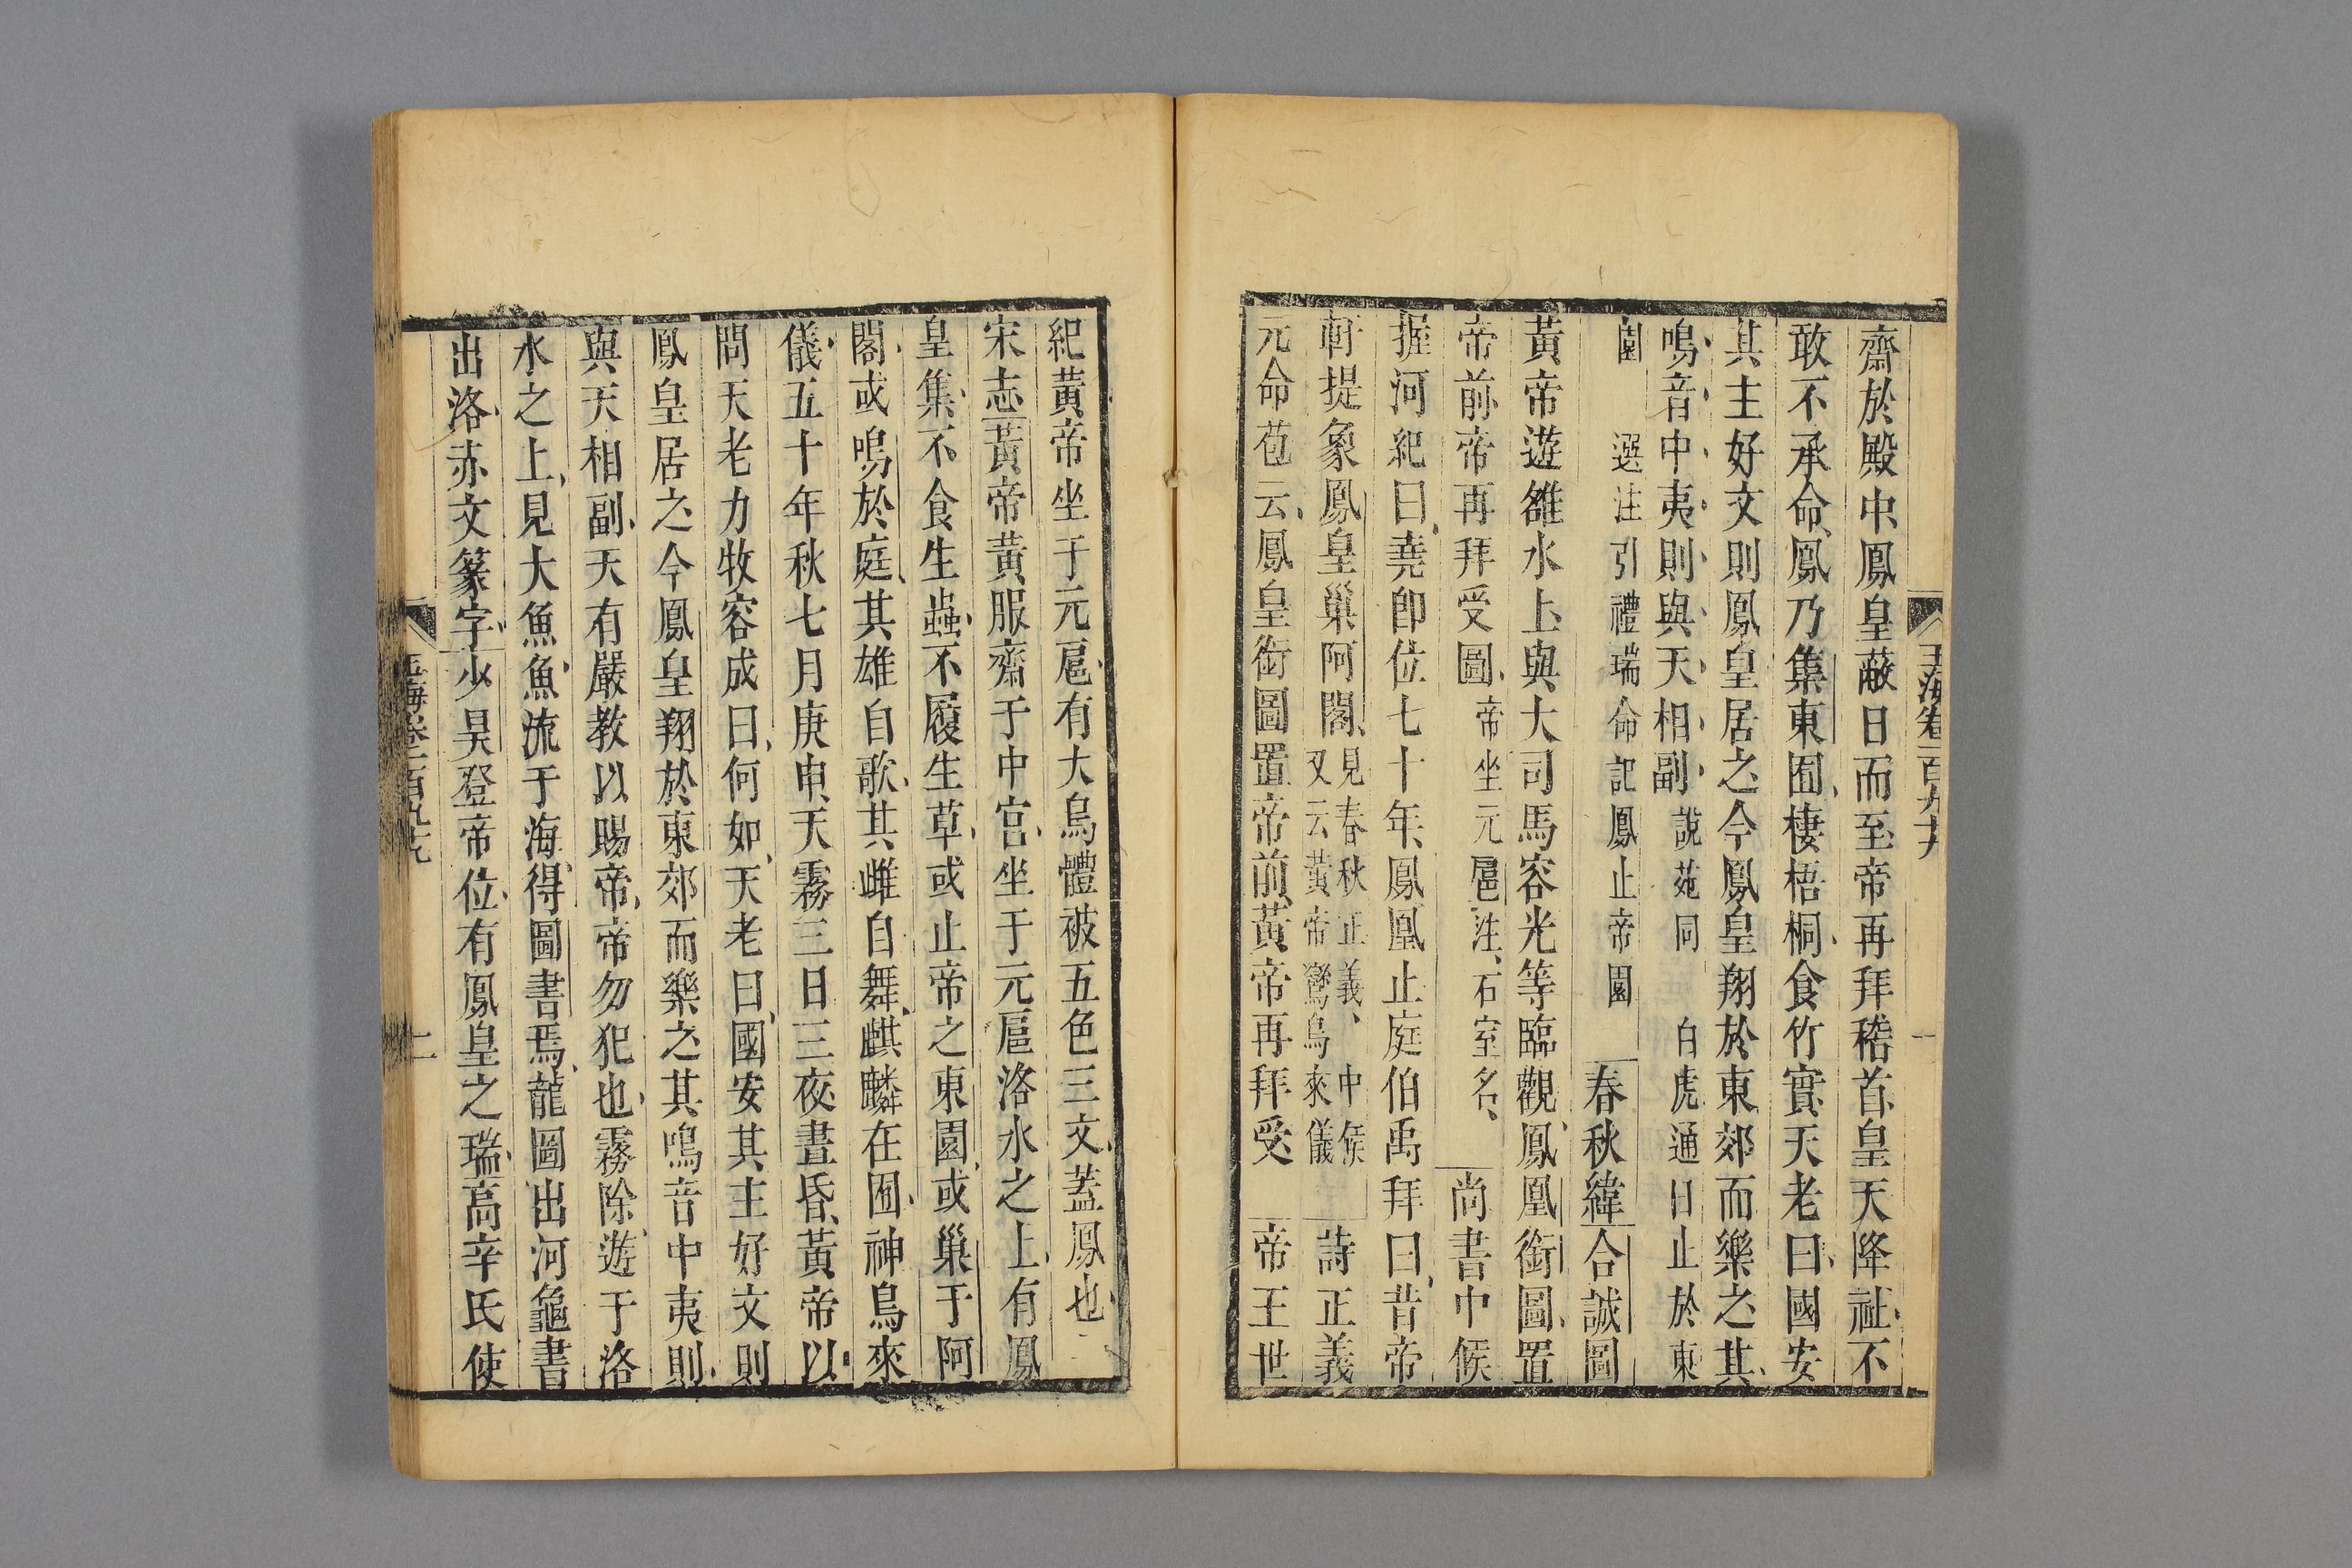 齋於殿中鳳皇蔽日而至帝再拜稽首皇天降祉不
敢不承命鳳乃集東囿棲梧桐食竹實天老曰國安
其主好文則鳳皇居之今鳳皇翔於東郊而樂之其
鳴音中夷則與天相副說苑同白虎通曰止於東
園選注引禮瑞命記鳳止帝園春秋緯合誠圖
黃帝遊雒水上與大司馬容光等臨觀鳳凰銜圖置
帝前帝再拜受圖帝坐元扈注石室名尚書中候
握河紀曰堯卽位七十年鳳凰止庭伯禹拜曰昔帝
軒提象鳳皇巢阿閣見春秋正義中候又云黃帝鸞鳥來儀詩正義
元命苞云鳳皇銜圖置帝前黃帝再拜受帝王世
紀黃帝坐于元扈有大鳥體被五色三文蓋鳳也
宋志黃帝黃服齋于中宮坐于元扈洛水之上有鳳
皇集不食生蟲不履生草或止帝之東園或巢于阿
閣或鳴於庭其雄自歌其雌自舞麒麟在囿神鳥來
儀五十年秋七月庚申天霧三日三夜晝昏黃帝以
問天老力牧容成曰何如天老曰國安其主好文則
鳳皇居之今鳳皇翔於東郊而樂之其鳴音中夷則
與天相副天有嚴教以賜帝帝勿犯也霧除遊于洛
水之上見大魚魚流于海得圖書焉龍圖出河龜書
出洛赤文篆字少昊登帝位有鳳皇之瑞高辛氏使
玉海卷二百九十九
一
玉海卷二百九十九
二